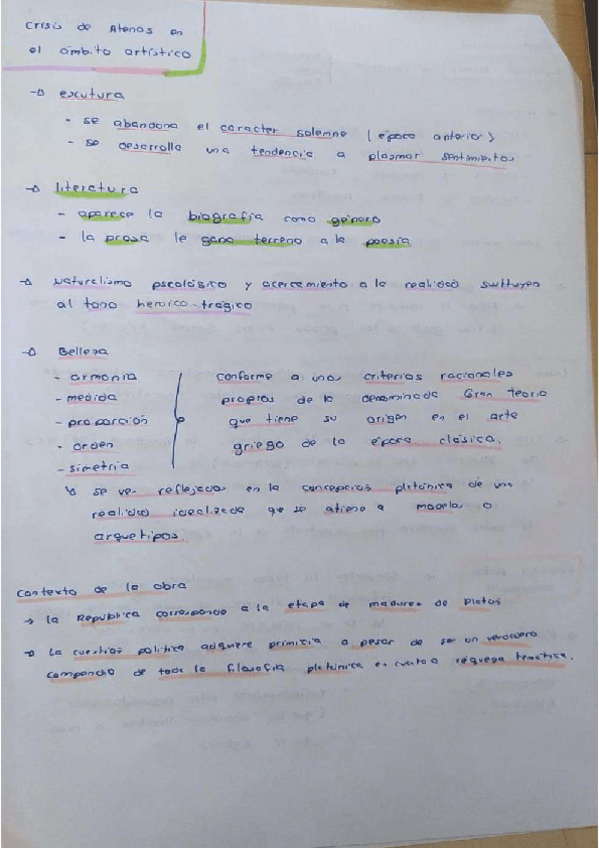 Crisis de Atenas en
el ámbito artístico
→ escutura
- se abandona el caracter solemne (época anterior)
- se desarrolla una tendencia a plasmar sentimientos
→ literatura
- aparece la biografia como género
- la prosa le gana terreno a la poesia
→ Naturalismo psicológico y acercamiento a la realidad sustituyen
al tono heroico-trágico
→ Belleza
- armonia
- medida
- proporción
- orden
- simetria
conforme a unos criterios racionales
propios de la denominada Gran Teoria
que tiene su origen en el arte
griego de la época clásica.
↳ se ven reflejados en la concepción platónica de una
realidad idealizada que se atiene a modelos o
arquetipos.
Contexto de la obra
→ la República corresponde a la etapa de madurez de Platón
→ La cuestion politica adquiere primicia a pesar de ser un verdadero
compendio de toda la filosofia platónica en cuanto a riqueza temática.